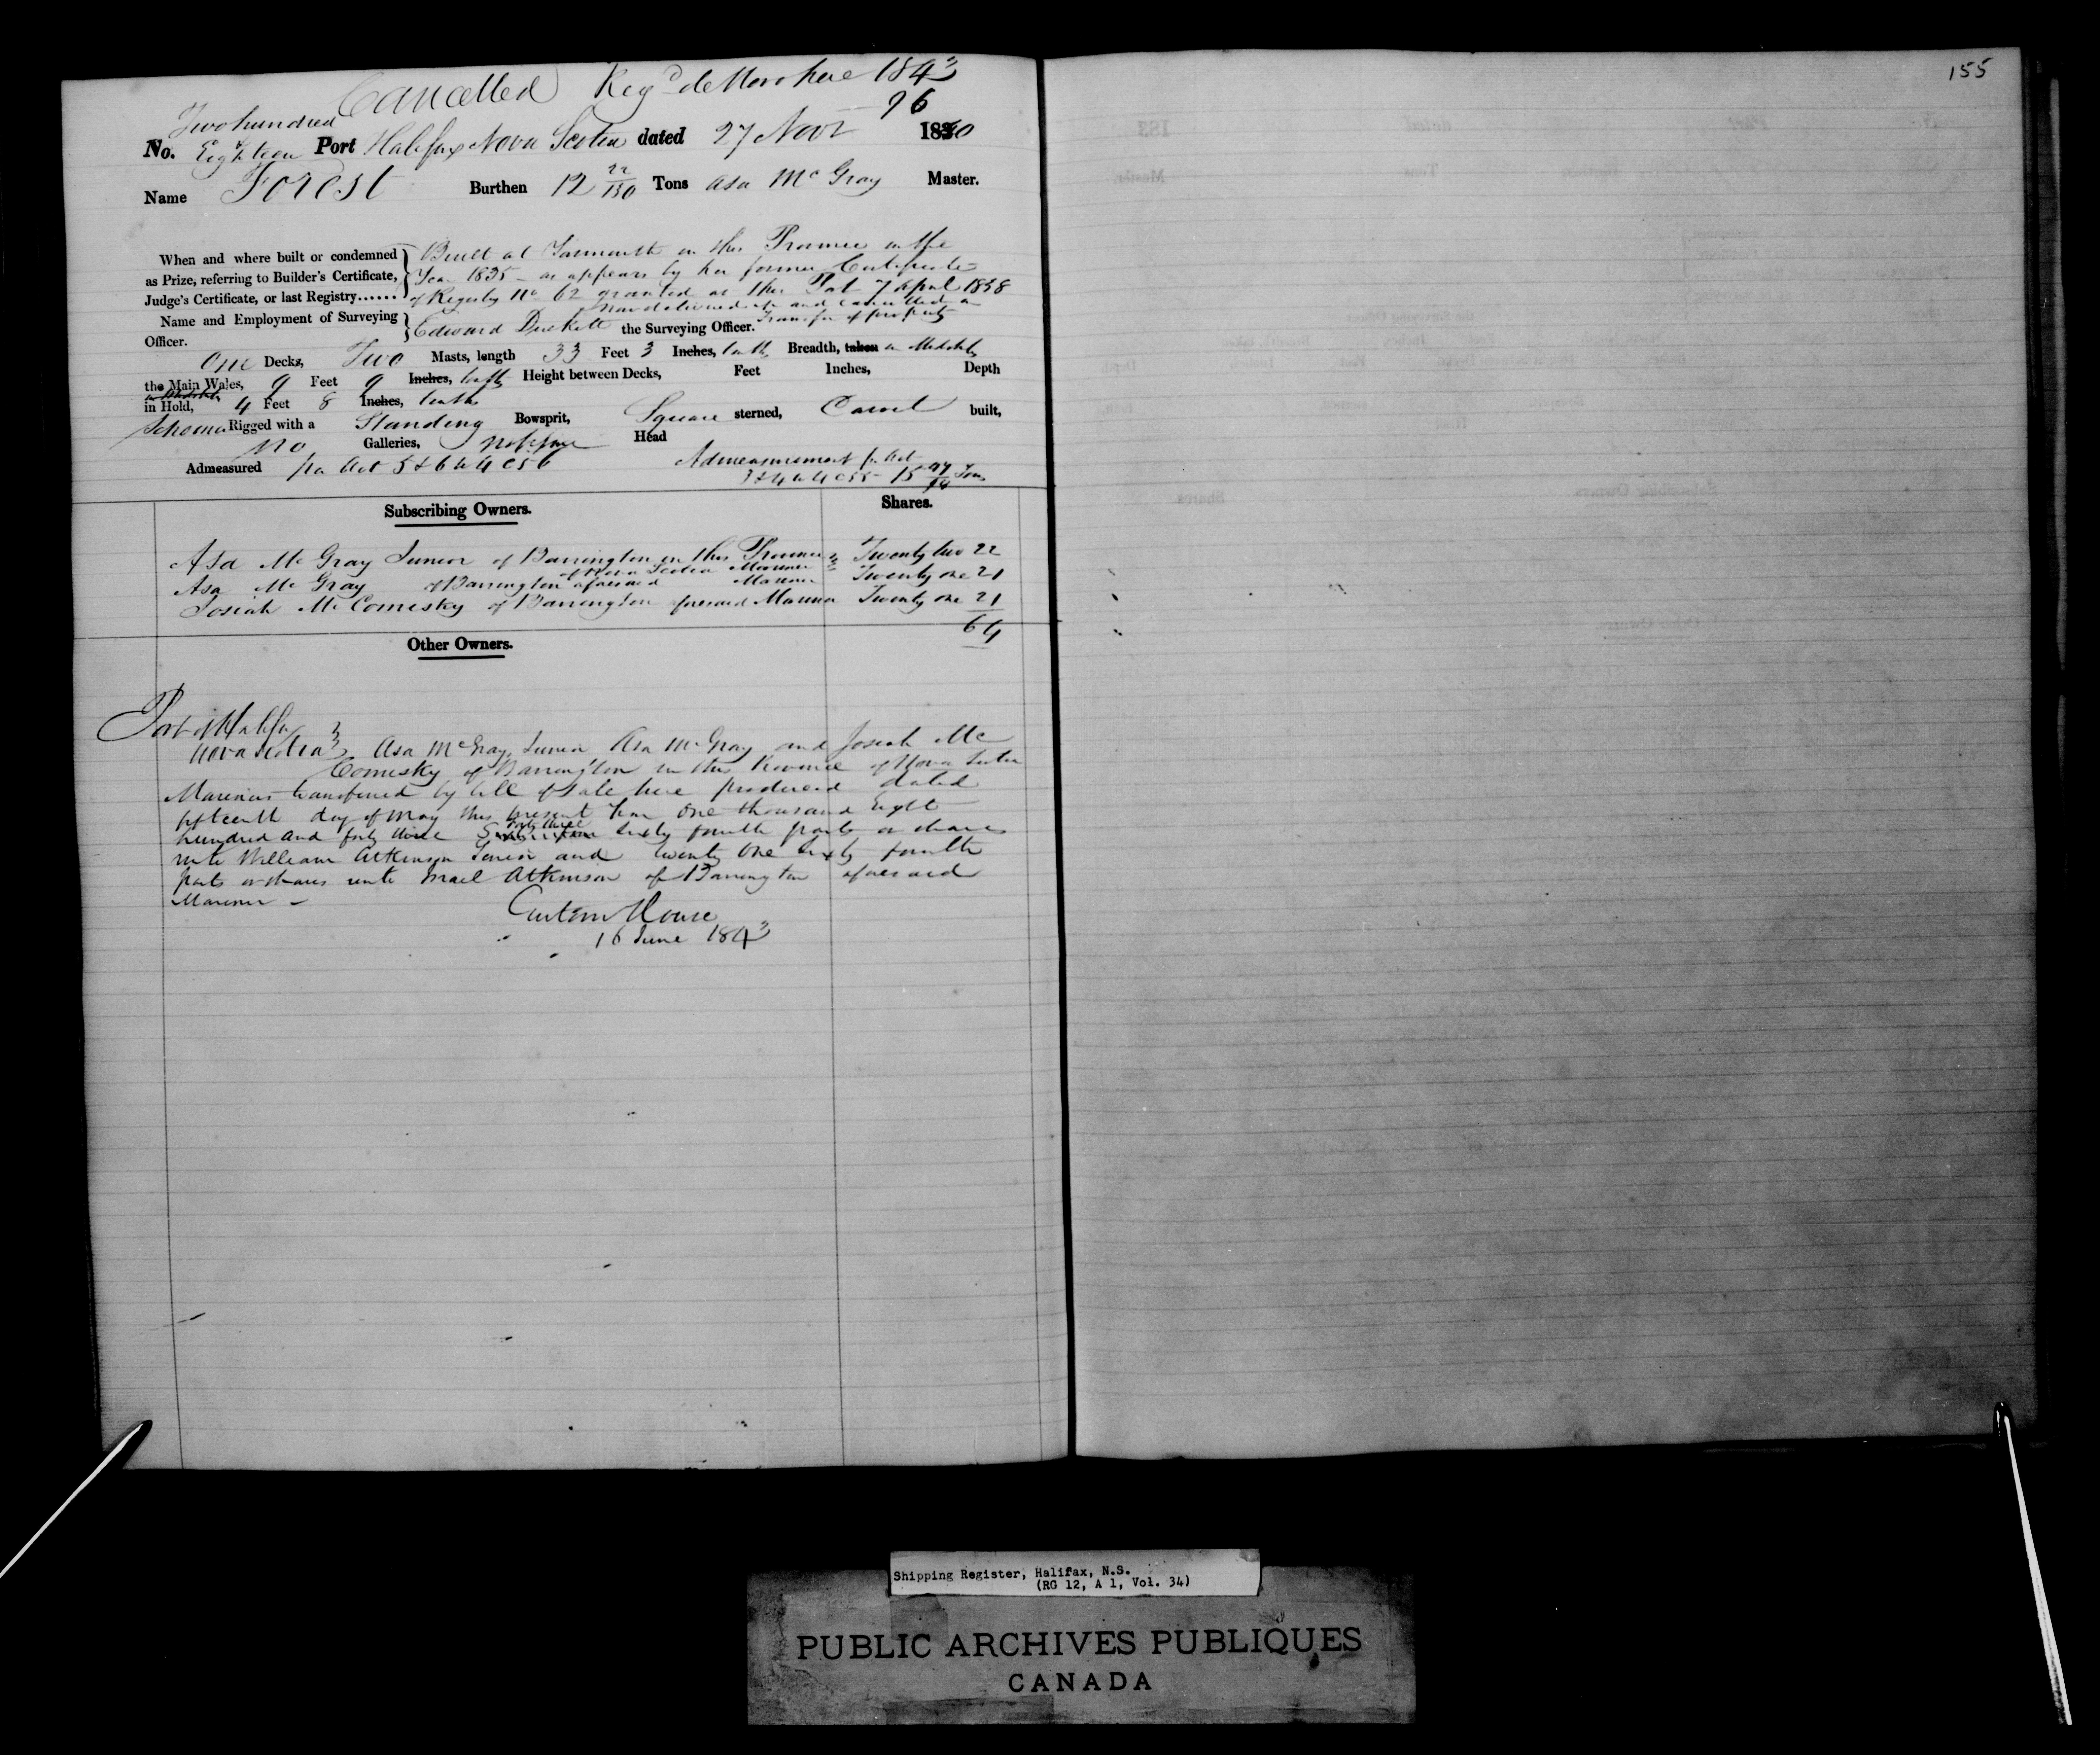 155
Cancelled Reg'd de Novo here 1843
96
Two hundred
No. Eighteen Port Halifax Nova Scotia dated 27 Novr 1840
Name Forest Burthen 12 22/130 Tons Asa McGray Master.
When and where built or condemned as Prize, referring to Builder's Certificate, Judge's Certificate, or last Registry......
Built at Yarmouth in this Province in the
Year 1835 - as appears by her former Certificate
of Registry No 62 granted at this Port 7 April 1838
now delivered up and cancelled on
Transfer of property
Name and Employment of Surveying Officer. Edward Duckett the Surveying Officer.
One Decks, Two Masts, length 33 Feet 3 Inches, tenths Breadth, taken in Midships
the Main Wales, 9 Feet 9 Inches, tenths Height between Decks, Feet Inches, Depth
in Midships
in Hold, 4 Feet 8 Inches, tenths
Schooner Rigged with a Standing Bowsprit, Square sterned, Carvel built,
No Galleries, Head
Admeasured per Act 5 & 6 W 4 C 56
Admeasurement per Act
3 & 4 W 4 C 55 - 15 Tons
Subscribing Owners. Shares.
Asa McGray Junior of Barrington in this Province Twenty two 22
of Nova Scotia Mariner
Asa McGray of Barrington aforesaid Mariner Twenty one 21
Josiah McComisky of Barrington aforesaid Mariner Twenty one 21
64
Other Owners.
Port of Halifax
Nova Scotia Asa McGray Junior Asa McGray and Josiah Mc
Comisky of Barrington in this Province of Nova Scotia
Mariners transferred by bill of sale here produced dated
fifteenth day of May this present Year One thousand Eight
hundred and forty three forty three sixty fourth parts or shares
unto William Atkinson Junior and twenty one sixty fourth
parts or shares unto Israel Atkinson of Barrington aforesaid
Mariner -
Custom House
16 June 1843
Shipping Register, Halifax, N.S.
(RG 12, A 1, Vol. 34)
PUBLIC ARCHIVES PUBLIQUES
CANADA